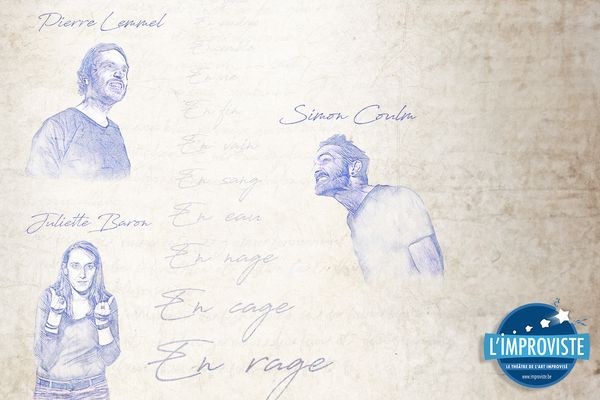 Pierre Lemmel
Simon Coulm
Juliette Baron
En vie
En fin
En vain
En sang
En eau
En nage
En cage
En rage
L'IMPROVISTE
LE THÉÂTRE DE L'ART IMPROVISÉ
www.improviste.be